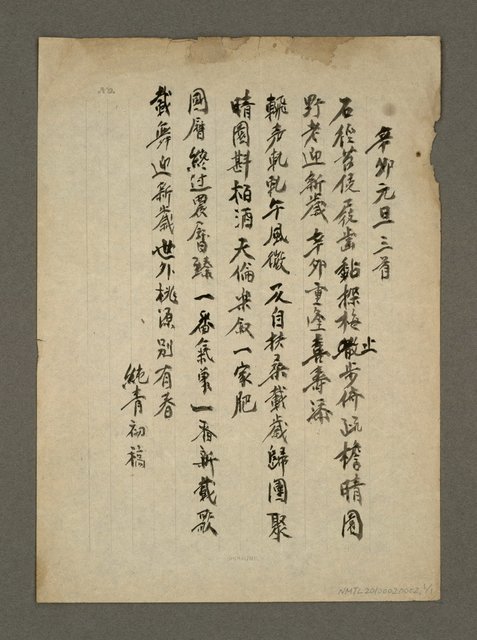 辛卯元旦三首
石徑苔侵屐齒黏探梅散步倚疏檐晴園
止
野老迎新歲辛卯重逢喜壽添
輾聲軋軋午風微 又自扶桑載歲歸團聚
晴園斟柏酒天倫樂敘一家肥
國曆終过農曆臻一番氣象一番新載歌
載舞迎新歲世外桃源別有春
純青初稿
No.
NMTL20100020002, 1/1